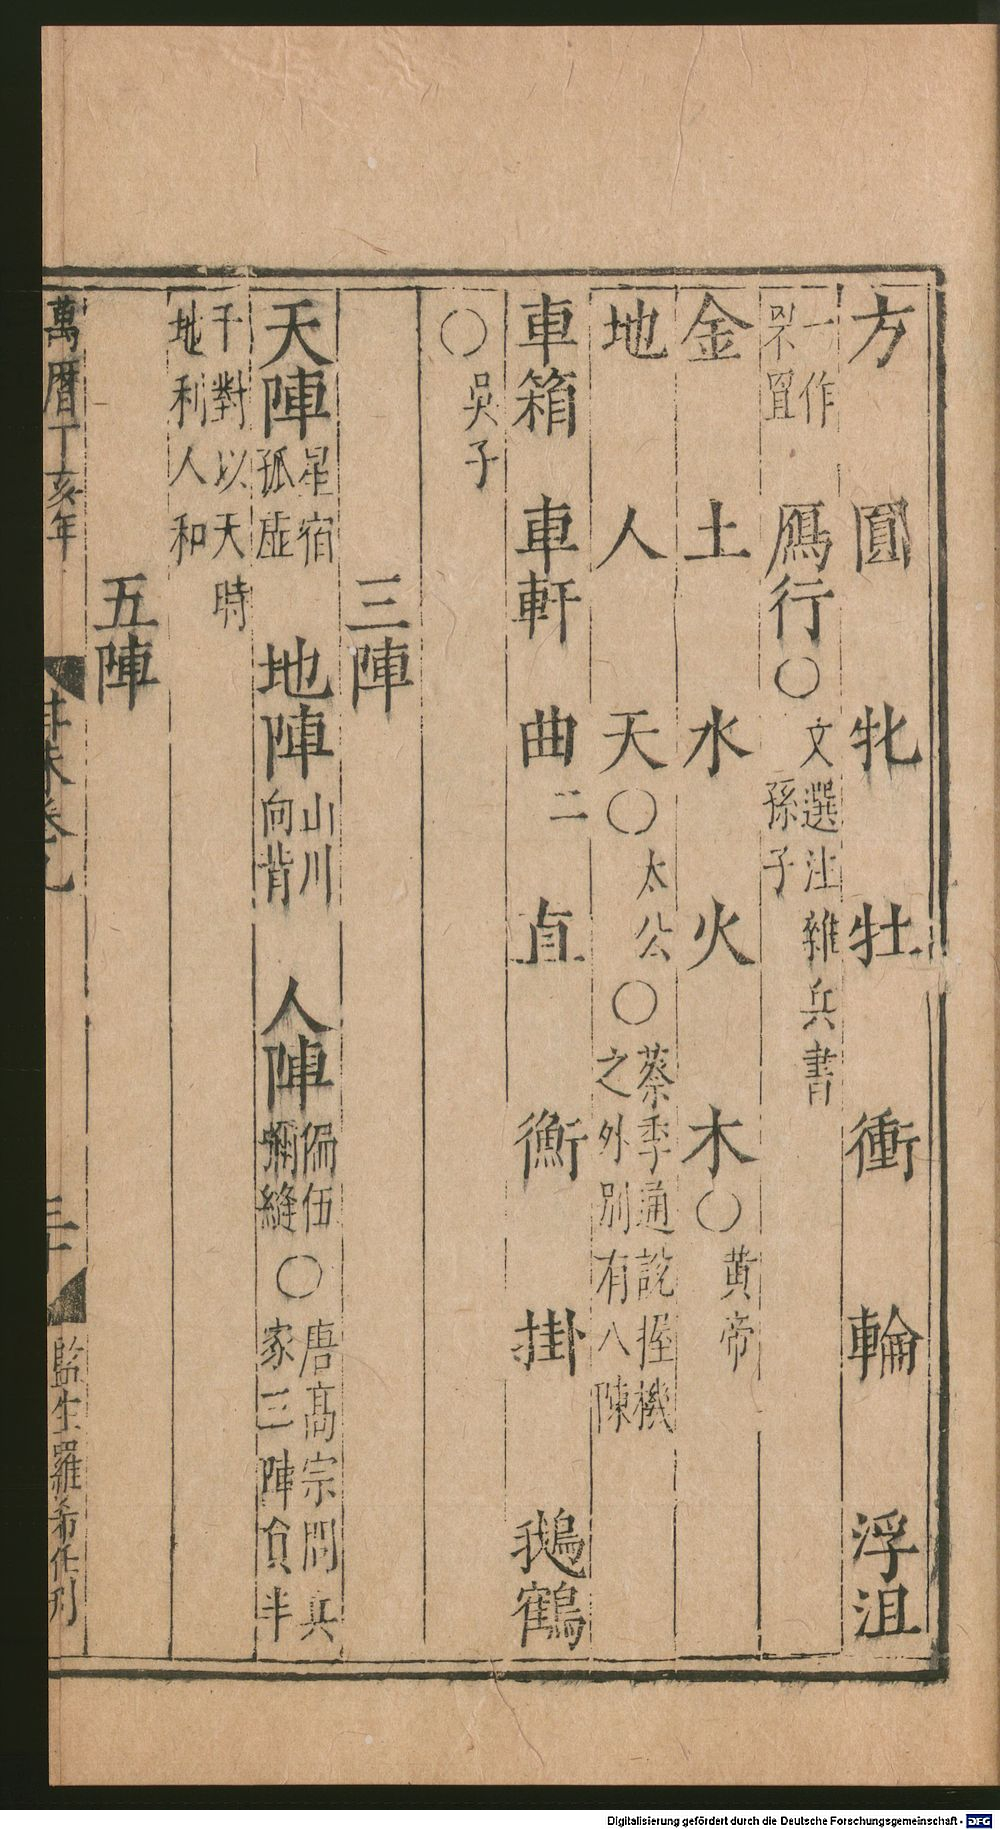 方 圓 牝 牡 衝 輪 浮沮
一作罘罝 鴈行 〇 文選注雜兵書孫子
金 土 水 火 木 〇 黃帝
地 人 天 〇 太公 〇 蔡季通說握機之外別有八陳
車箱 車軒 曲二 直 衡 掛 鵝鶴
〇 吳子
三陣
天陣 星宿孤虛 地陣 山川向背 人陣 偏伍彌縫 〇 唐高宗問兵家三陣員半
千對以天時地利人和
五陣
萬曆丁亥年
卷九
監生羅希仕刋
Digitalisierung gefördert durch die Deutsche Forschungsgemeinschaft - DFG